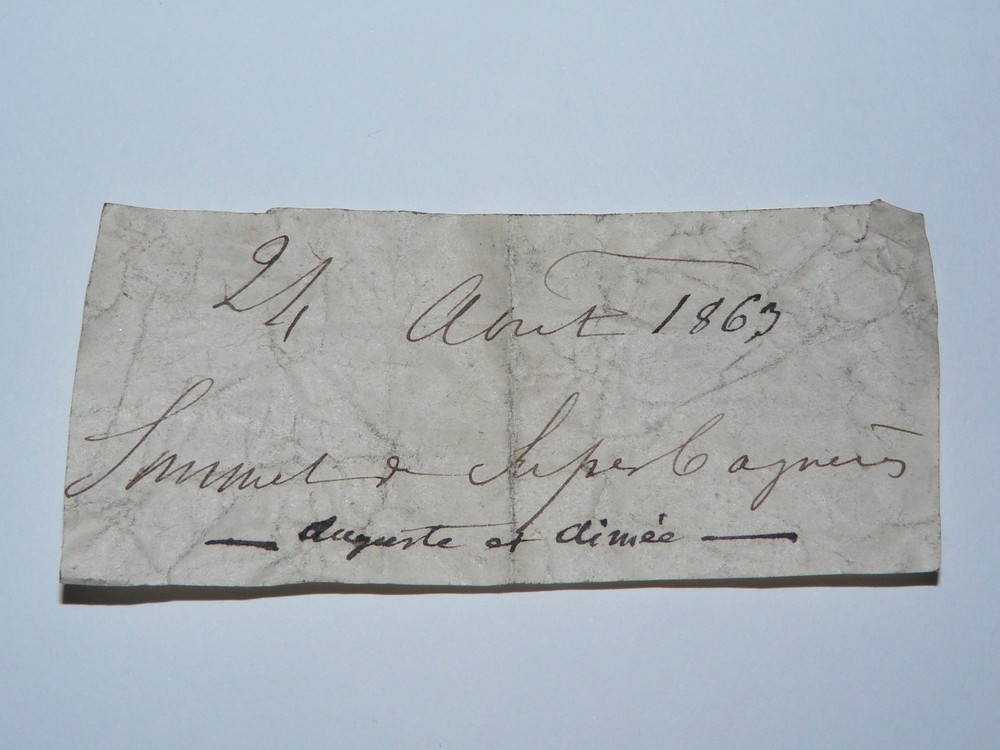 24 Août 1863
Sommet de SuperBagnères
— Auguste et Aimée —